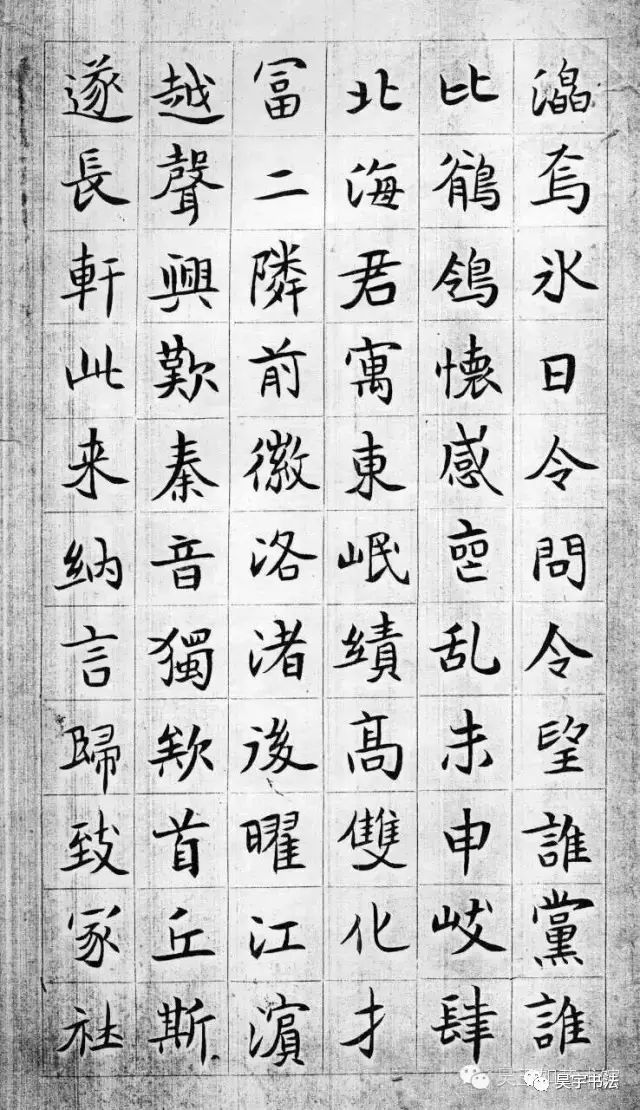 焉氷日令問令望誰黨誰
比鶺鴒懷感喪乱未申岐肆
北海君寓東岷績高雙化才
冨二隣前徽洛渚後曜江濵
越聲興歎秦音獨欵首丘斯
遂長軒此来納言歸致冢社
昊宇书法